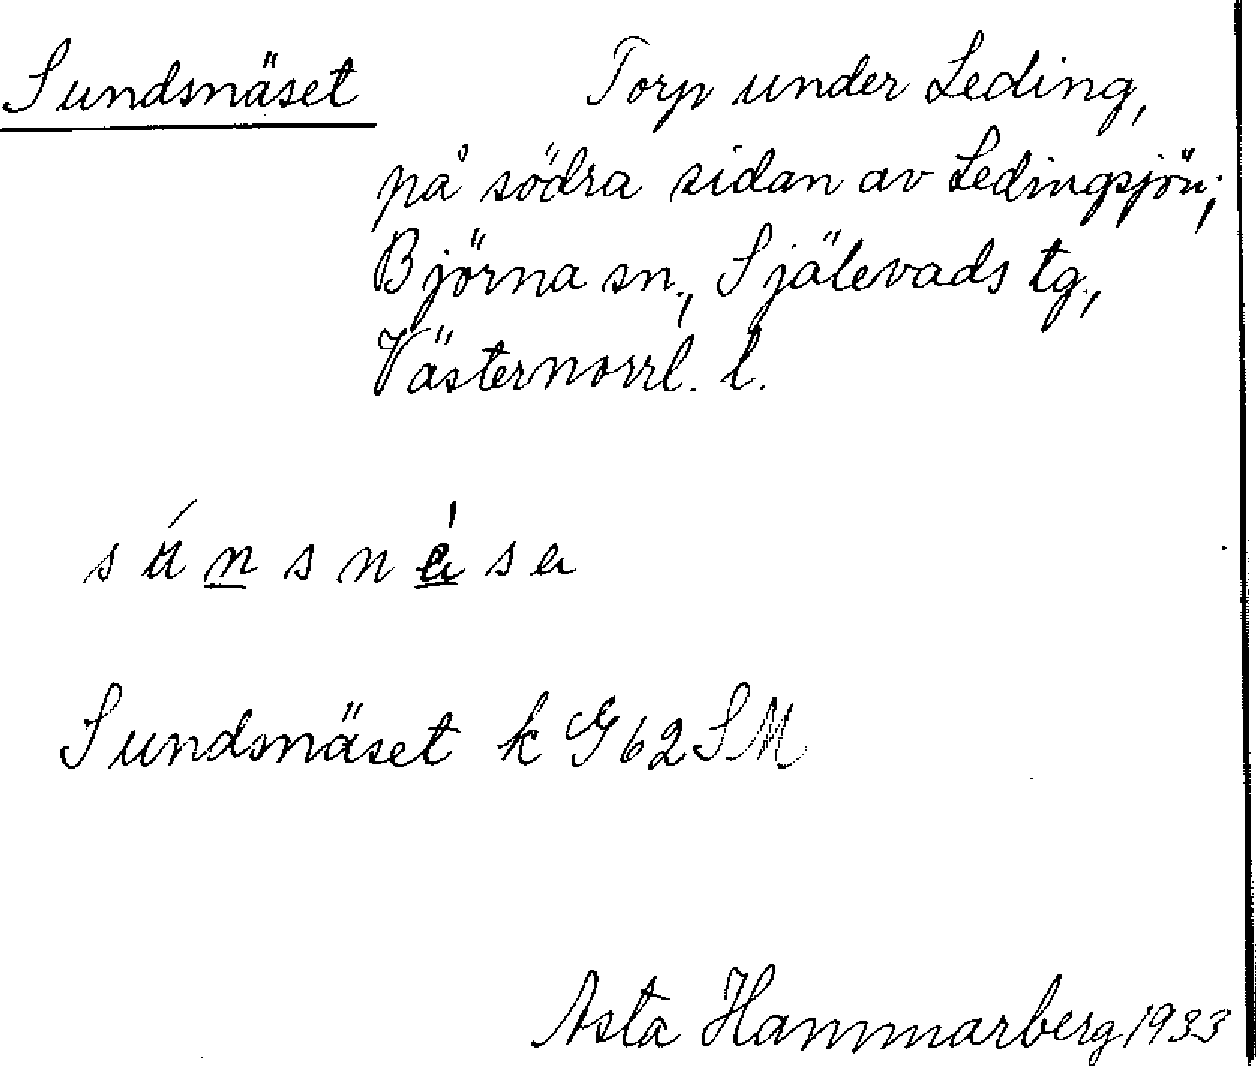 Sundsnäset Torp under Leding,
på södra sidan av Ledingsjön;
Björna sn., Själevads tg.,
Västernorrl. l.
Sundsnäset k G62SM
Asta Hammarberg 1933